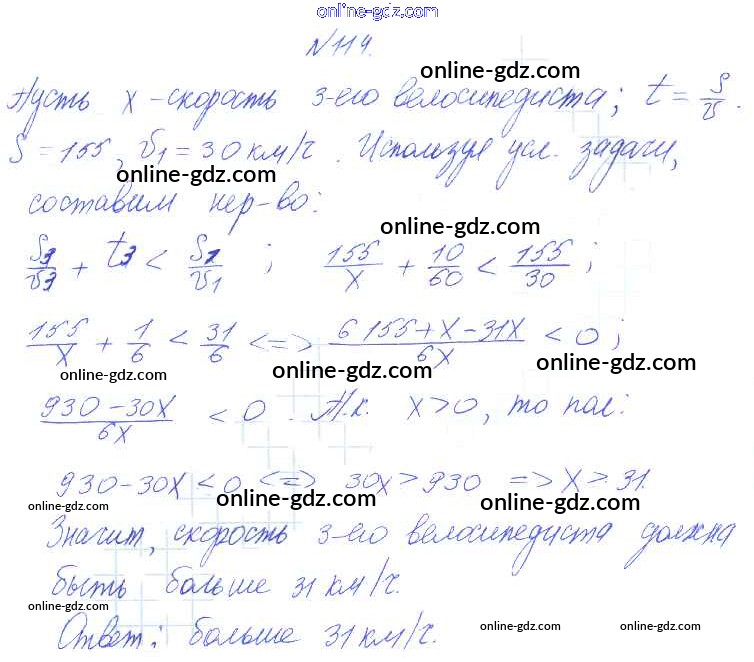 online-gdz.com
№114.
online-gdz.com
Пусть x - скорость 3-его велосипедиста; t = S/v.
S = 155, v1 = 30 км/ч. Используя усл. задачи,
online-gdz.com
составим нер-во:
online-gdz.com
S3/v3 + t3 < S1/v1 ; 155/x + 10/60 < 155/30 ;
155/x + 1/6 < 31/6 <=> 6 155+x-31x/6x < 0 ;
online-gdz.com online-gdz.com
930-30x/6x < 0. Т.к. x>0, то пол:
online-gdz.com
930-30x < 0 <=> 30x > 930 => x > 31.
online-gdz.com online-gdz.com online-gdz.com
Значит, скорость 3-его велосипедиста должна
быть больше 31 км/ч.
online-gdz.com
Ответ: больше 31 км/ч.
online-gdz.com online-gdz.com online-gdz.com